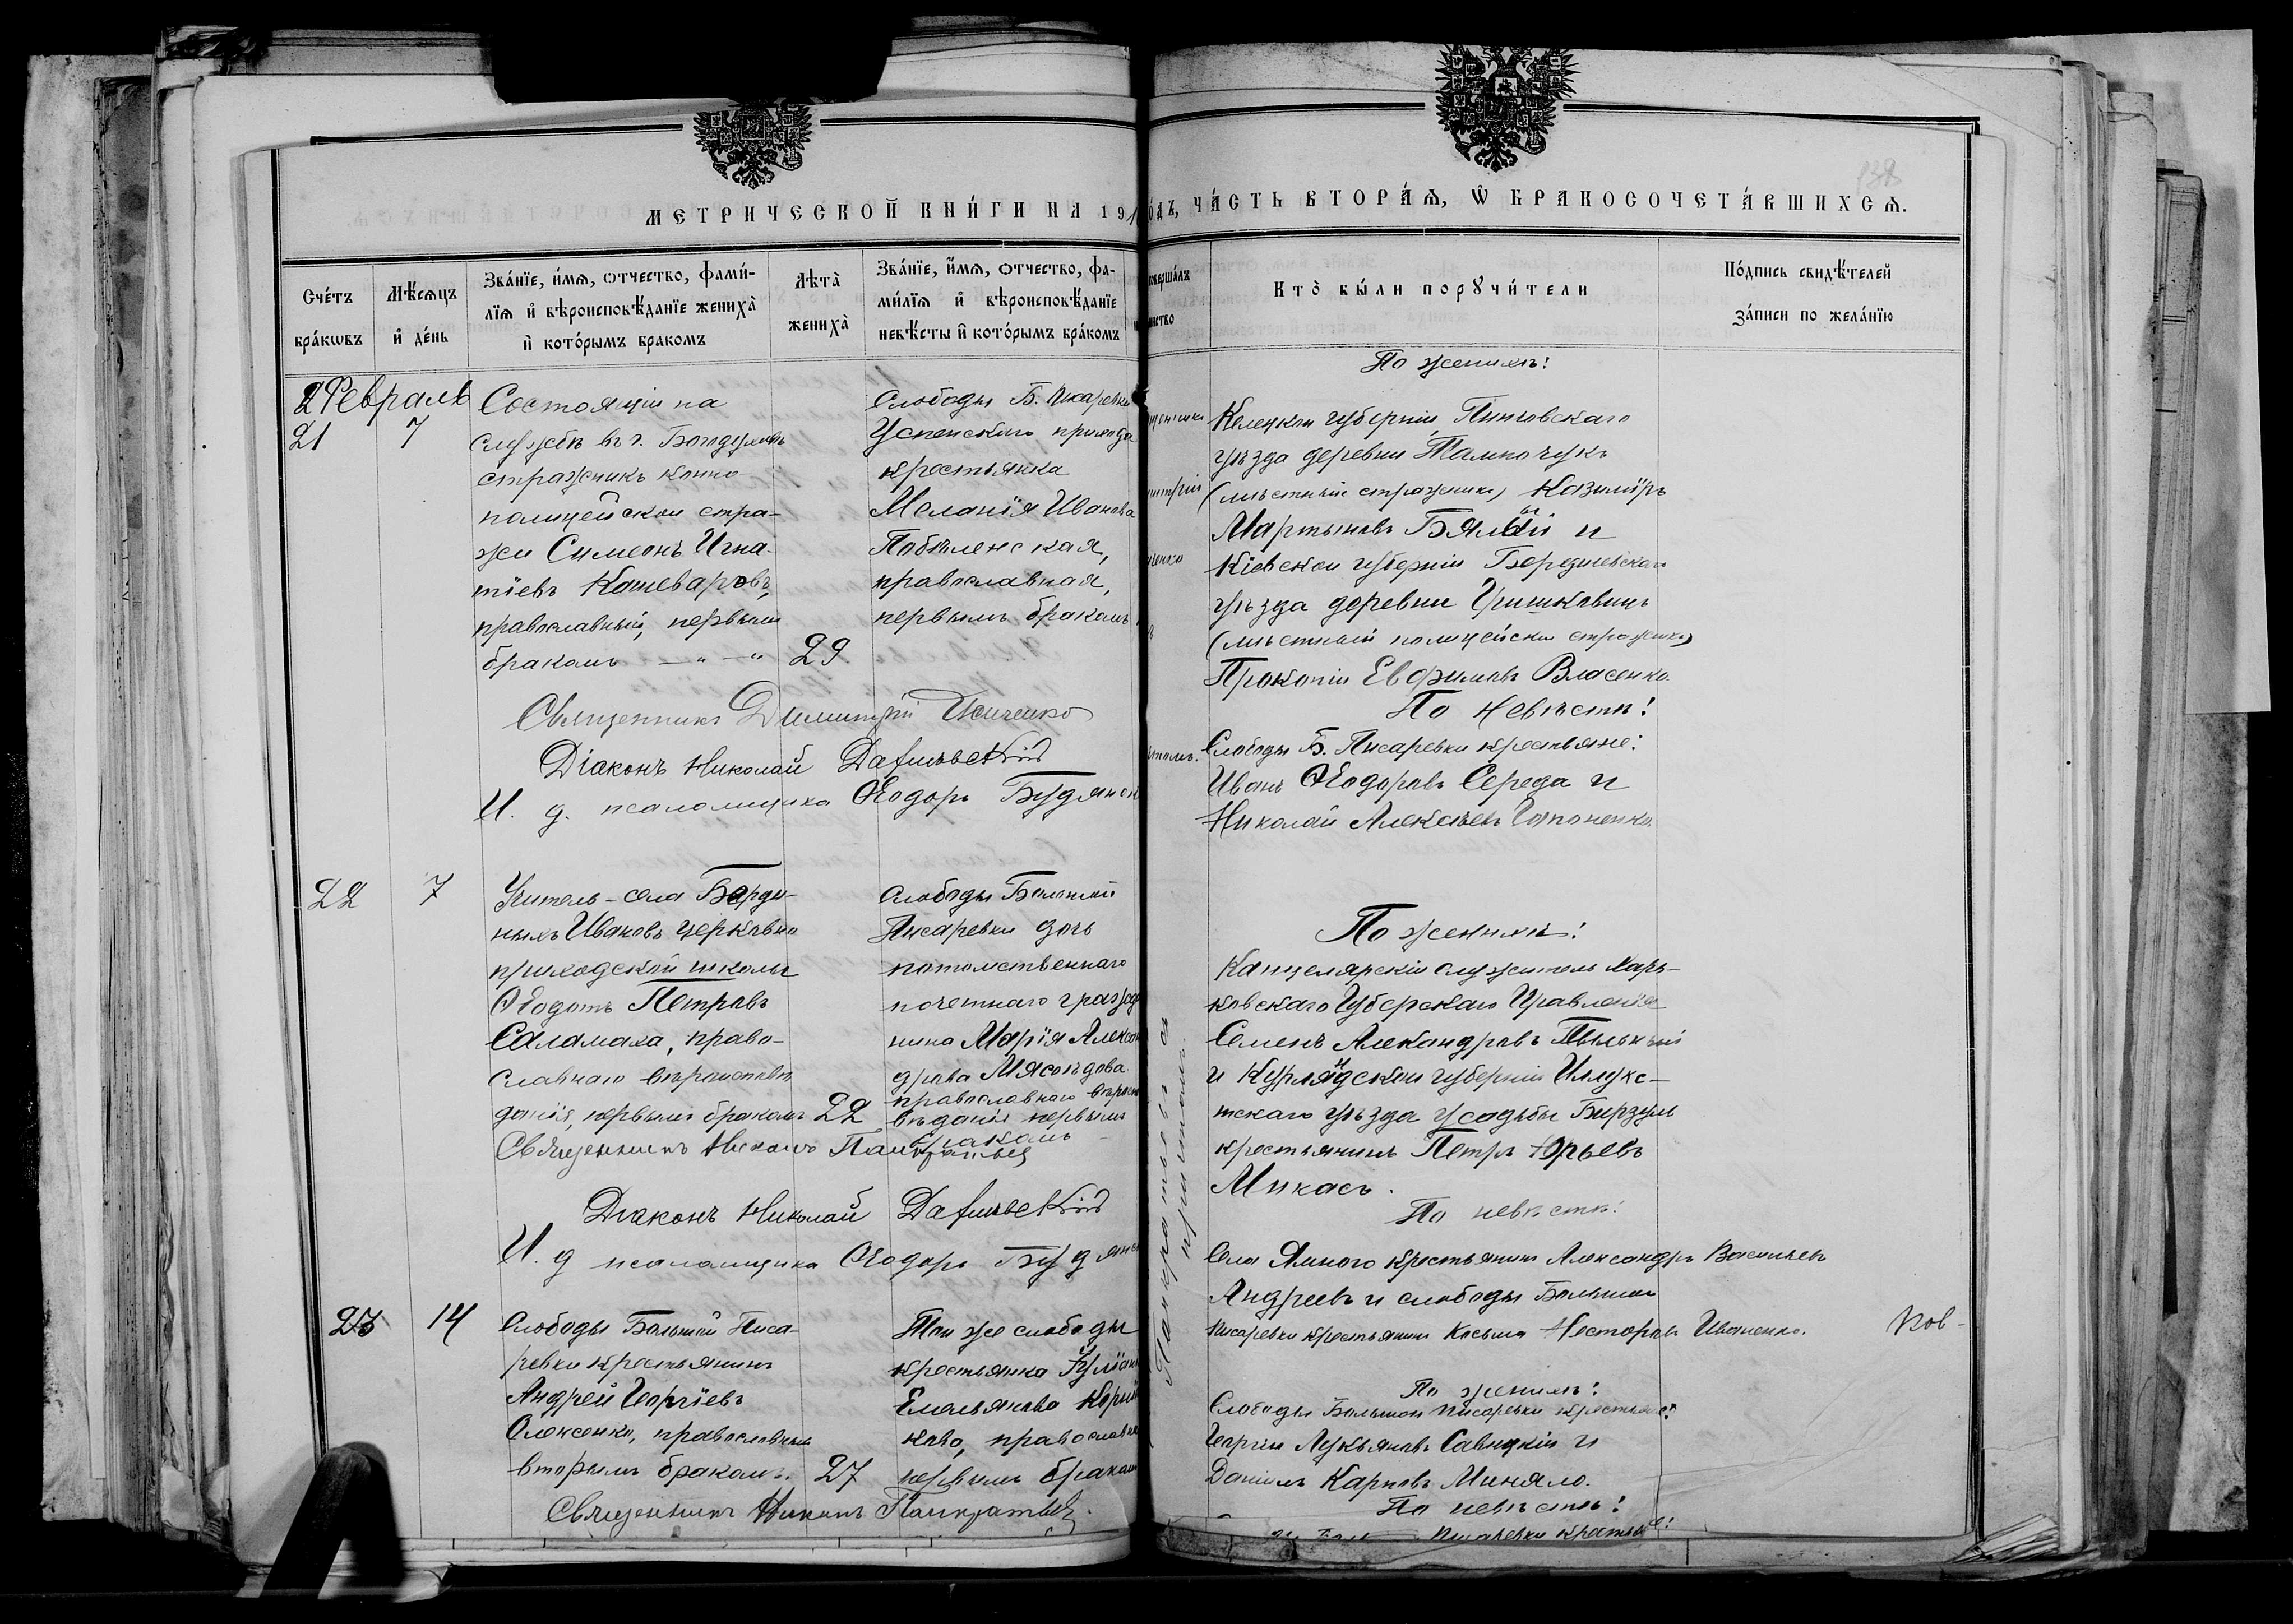 138
МЕТРИЧЕСКОЙ КНИ́ГИ НА 191
ОДЪ, ЧА́СТЬ ВТОРА́Ѧ, Ѡ БРАКОСОЧЕТА́ВШИХСѦ.
Счётъ бра́кѡвъ
Мѣ́сѧцъ и҆ де́нь
Зва́нїе, и҆́мѧ, ѻтчество, фами́-
лїѧ и҆ вѣроисповѣ́данїе женихà
и҆ кото́рымъ бракомъ
Лѣтà женихà
Зва́нїе, и҆́мѧ, ѻтчество, фа-
ми́лїѧ и҆ вѣроисповѣ́данїе
невѣ́сты и҆ кото́рымъ бра́комъ
совершалъ
Ктò бы́ли порꙋчи́тели
По́дпись свидѣ́телей
за́писи по жела́нїю
Февраль
21 7
Состоящій на
службѣ въ г. Богодуховѣ
стражникъ конно-
полицейской стра-
жи Симеонъ Игна-
тіевъ Кашеваровъ,
православный, первымъ
бракомъ — „ — „ 29
Слободы Б. Писаревки
Успенскаго прихода
крестьянка
Меланія Иванова
Побѣленская,
православная,
первымъ бракомъ
По женихѣ:
Келецкой губерніи, Пинчовскаго
уѣзда деревни
(мѣстный стражникъ) Казиміръ
Мартыновъ Бялый и
Кіевской губерніи Бердичевскаго
уѣзда деревни Гришковецъ
(мѣстный полицейскій стражникъ)
Прокопій Евфимовъ Власенко.
По невѣстѣ:
Слободы Б. Писаревки крестьяне:
Иванъ Ѳеодоровъ Середа и
Николай Алексѣевъ Гапоненко.
Священникъ Димитрій
Діаконъ Николай
И. д. псаломщика Ѳеодоръ Будянск
22 7
Учитель села Борди-
ныхъ Ивановъ церковно
приходской школы
Ѳеодотъ Петровъ
Саламаха, право-
славнаго вѣроисповѣ
данія, первымъ бракомъ 22
слободы Большой
Писаревки дочь
потомственнаго
почетнаго гражда
нина Марія Алексан
дрова Мясоѣдова
православнаго вѣроис
вѣданія первымъ
бракомъ
По женихѣ:
Канцелярскій служитель Харь-
ковскаго Губерскаго Правленія
Семенъ Алекандровъ
и Курляндской губерніи Иллукс-
тскаго уѣзда усадьбы
крестьянинъ Петръ Юрьевъ
Микасъ.
По невѣстѣ:
Села Ямного крестьянинъ Александръ Васильевъ
Андреевъ и слободы Большой
Писаревки крестьянинъ Косьма Несторовъ Иваненко.
Священникъ Никонъ Панкратьевъ
Діаконъ Николай
И. д псаломщика Ѳеодоръ Будянс
23 14
Слободы Большой Писа-
ревки крестьянинъ
Андрей Георгіевъ
Олексенко, православный
вторымъ бракомъ. 27
Той же слободы
крестьянка Іуліан
Емельянова
ково, православна
первымъ бракомъ
По женихѣ:
Слободы Большой Писаревки крестьяне:
Георгій Лукьяновъ Савицкій и
Даніилъ Карповъ Миняло.
По невѣстѣ:
Писаревки крестьяне:
Священникъ Никонъ Панкратьевъ.